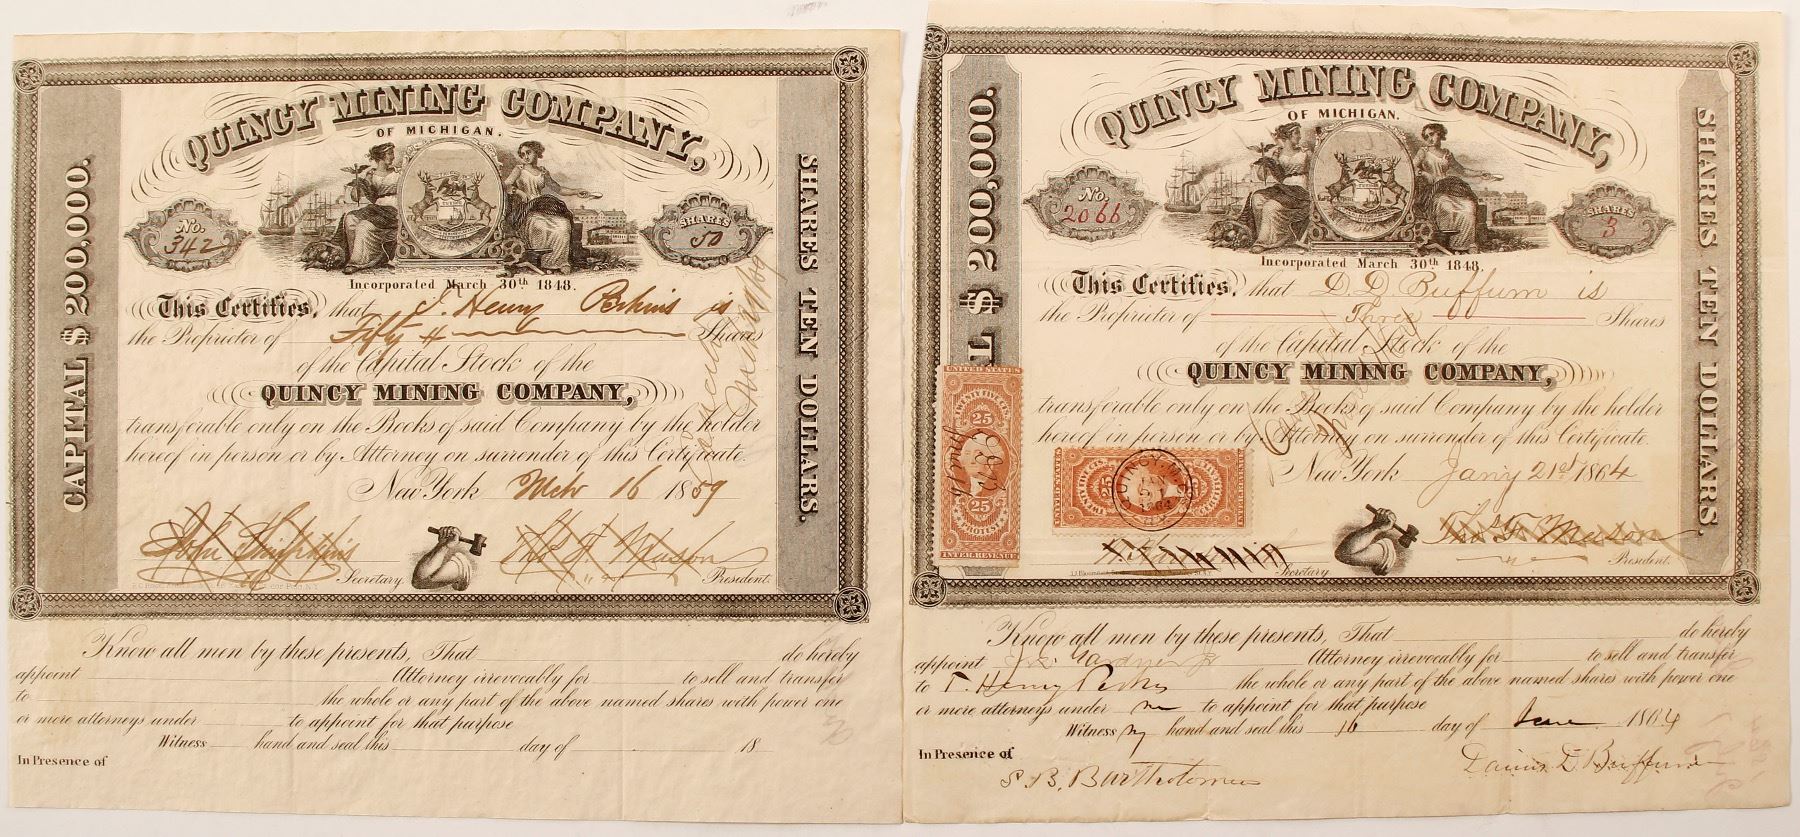 QUINCY MINING COMPANY,
OF MICHIGAN.
No.
342
SHARES
50
Incorporated March 30th 1848.
This Certifies, that J. Henry Perkins is
the Proprietor of Fifty Shares
of the Capital Stock of the
QUINCY MINING COMPANY,
transferable only on the Books of said Company by the holder
hereof in person or by Attorney on surrender of this Certificate.
New York Mch 16 1859
Secretary.
Thos F. Mason
President.
CAPITAL $ 200,000.
SHARES TEN DOLLARS.
Know all men by these presents, That do hereby
appoint Attorney irrevocably for to sell and transfer
to the whole or any part of the above named shares with power one
or more attorneys under to appoint for that purpose
Witness hand and seal this day of 18
In Presence of
QUINCY MINING COMPANY,
OF MICHIGAN.
No.
2066
SHARES
3
Incorporated March 30th 1848.
This Certifies, that D. D Buffum is
the Proprietor of Three Shares
of the Capital Stock of the
QUINCY MINING COMPANY,
transferable only on the Books of said Company by the holder
hereof in person or by Attorney on surrender of this Certificate.
New York Jany 21st 1864
Secretary
Thos F. Mason
President.
L $ 200,000.
SHARES TEN DOLLARS.
UNITED STATES
TWENTY FIVE CTS.
25
25
INTER. REVENUE
QUINCY
1864
Know all men by these presents, That do hereby
appoint Gardner Jr Attorney irrevocably for to sell and transfer
to T. Henry Perkins the whole or any part of the above named shares with power one
or more attorneys under me to appoint for that purpose
Witness my hand and seal this 16 day of June 1864
In Presence of
S. B. Bartholomew
Darius D. Buffum